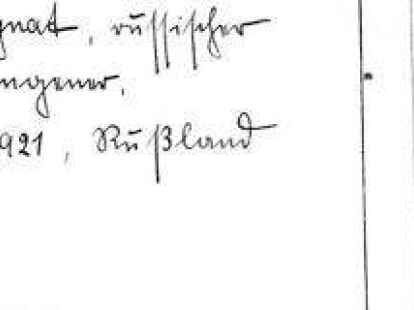 gnat, russischer
ngener,
921, Rußland